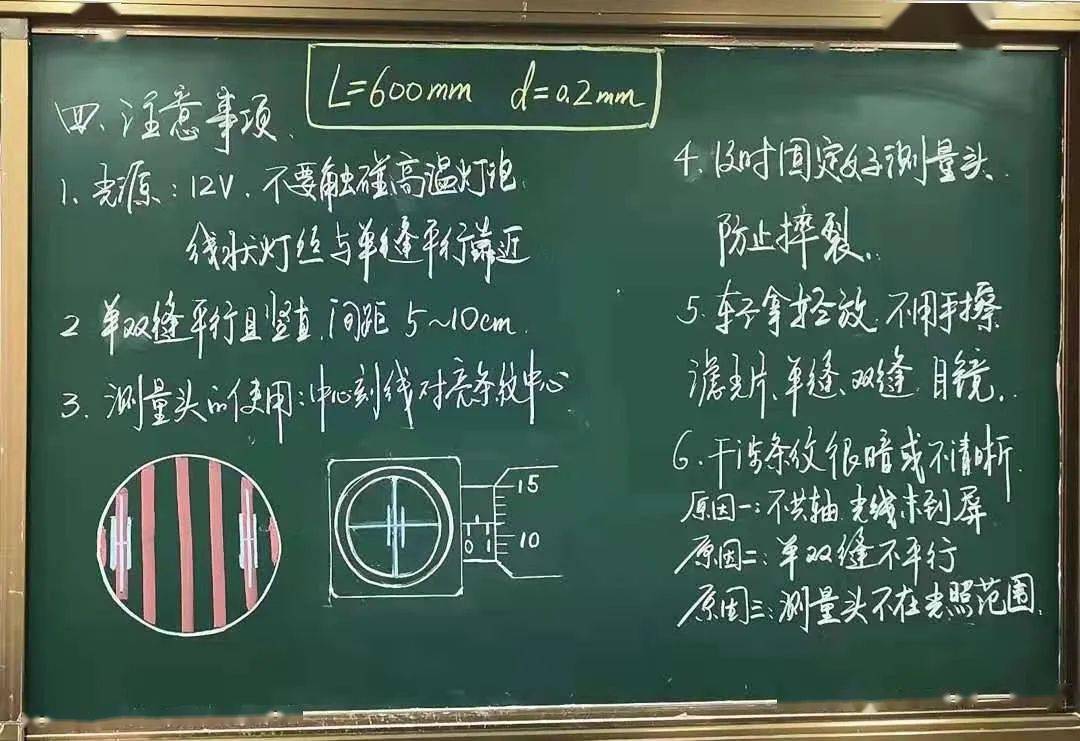 L=600mm d=0.2mm
四、注意事项
1、光源:12V,不要触碰高温灯泡
线状灯丝与单缝平行靠近
2 单双缝平行且竖直,间距 5~10cm.
3、测量头的使用:中心刻线对亮条纹中心
15
10
0 1
4、及时固定好测量头.
防止摔裂.
5、轻拿轻放,不用手擦
滤光片、单缝、双缝、目镜.
6、干涉条纹很暗或不清晰
原因一:不共轴,光线未到屏
原因二:单双缝不平行
原因三:测量头不在光照范围.